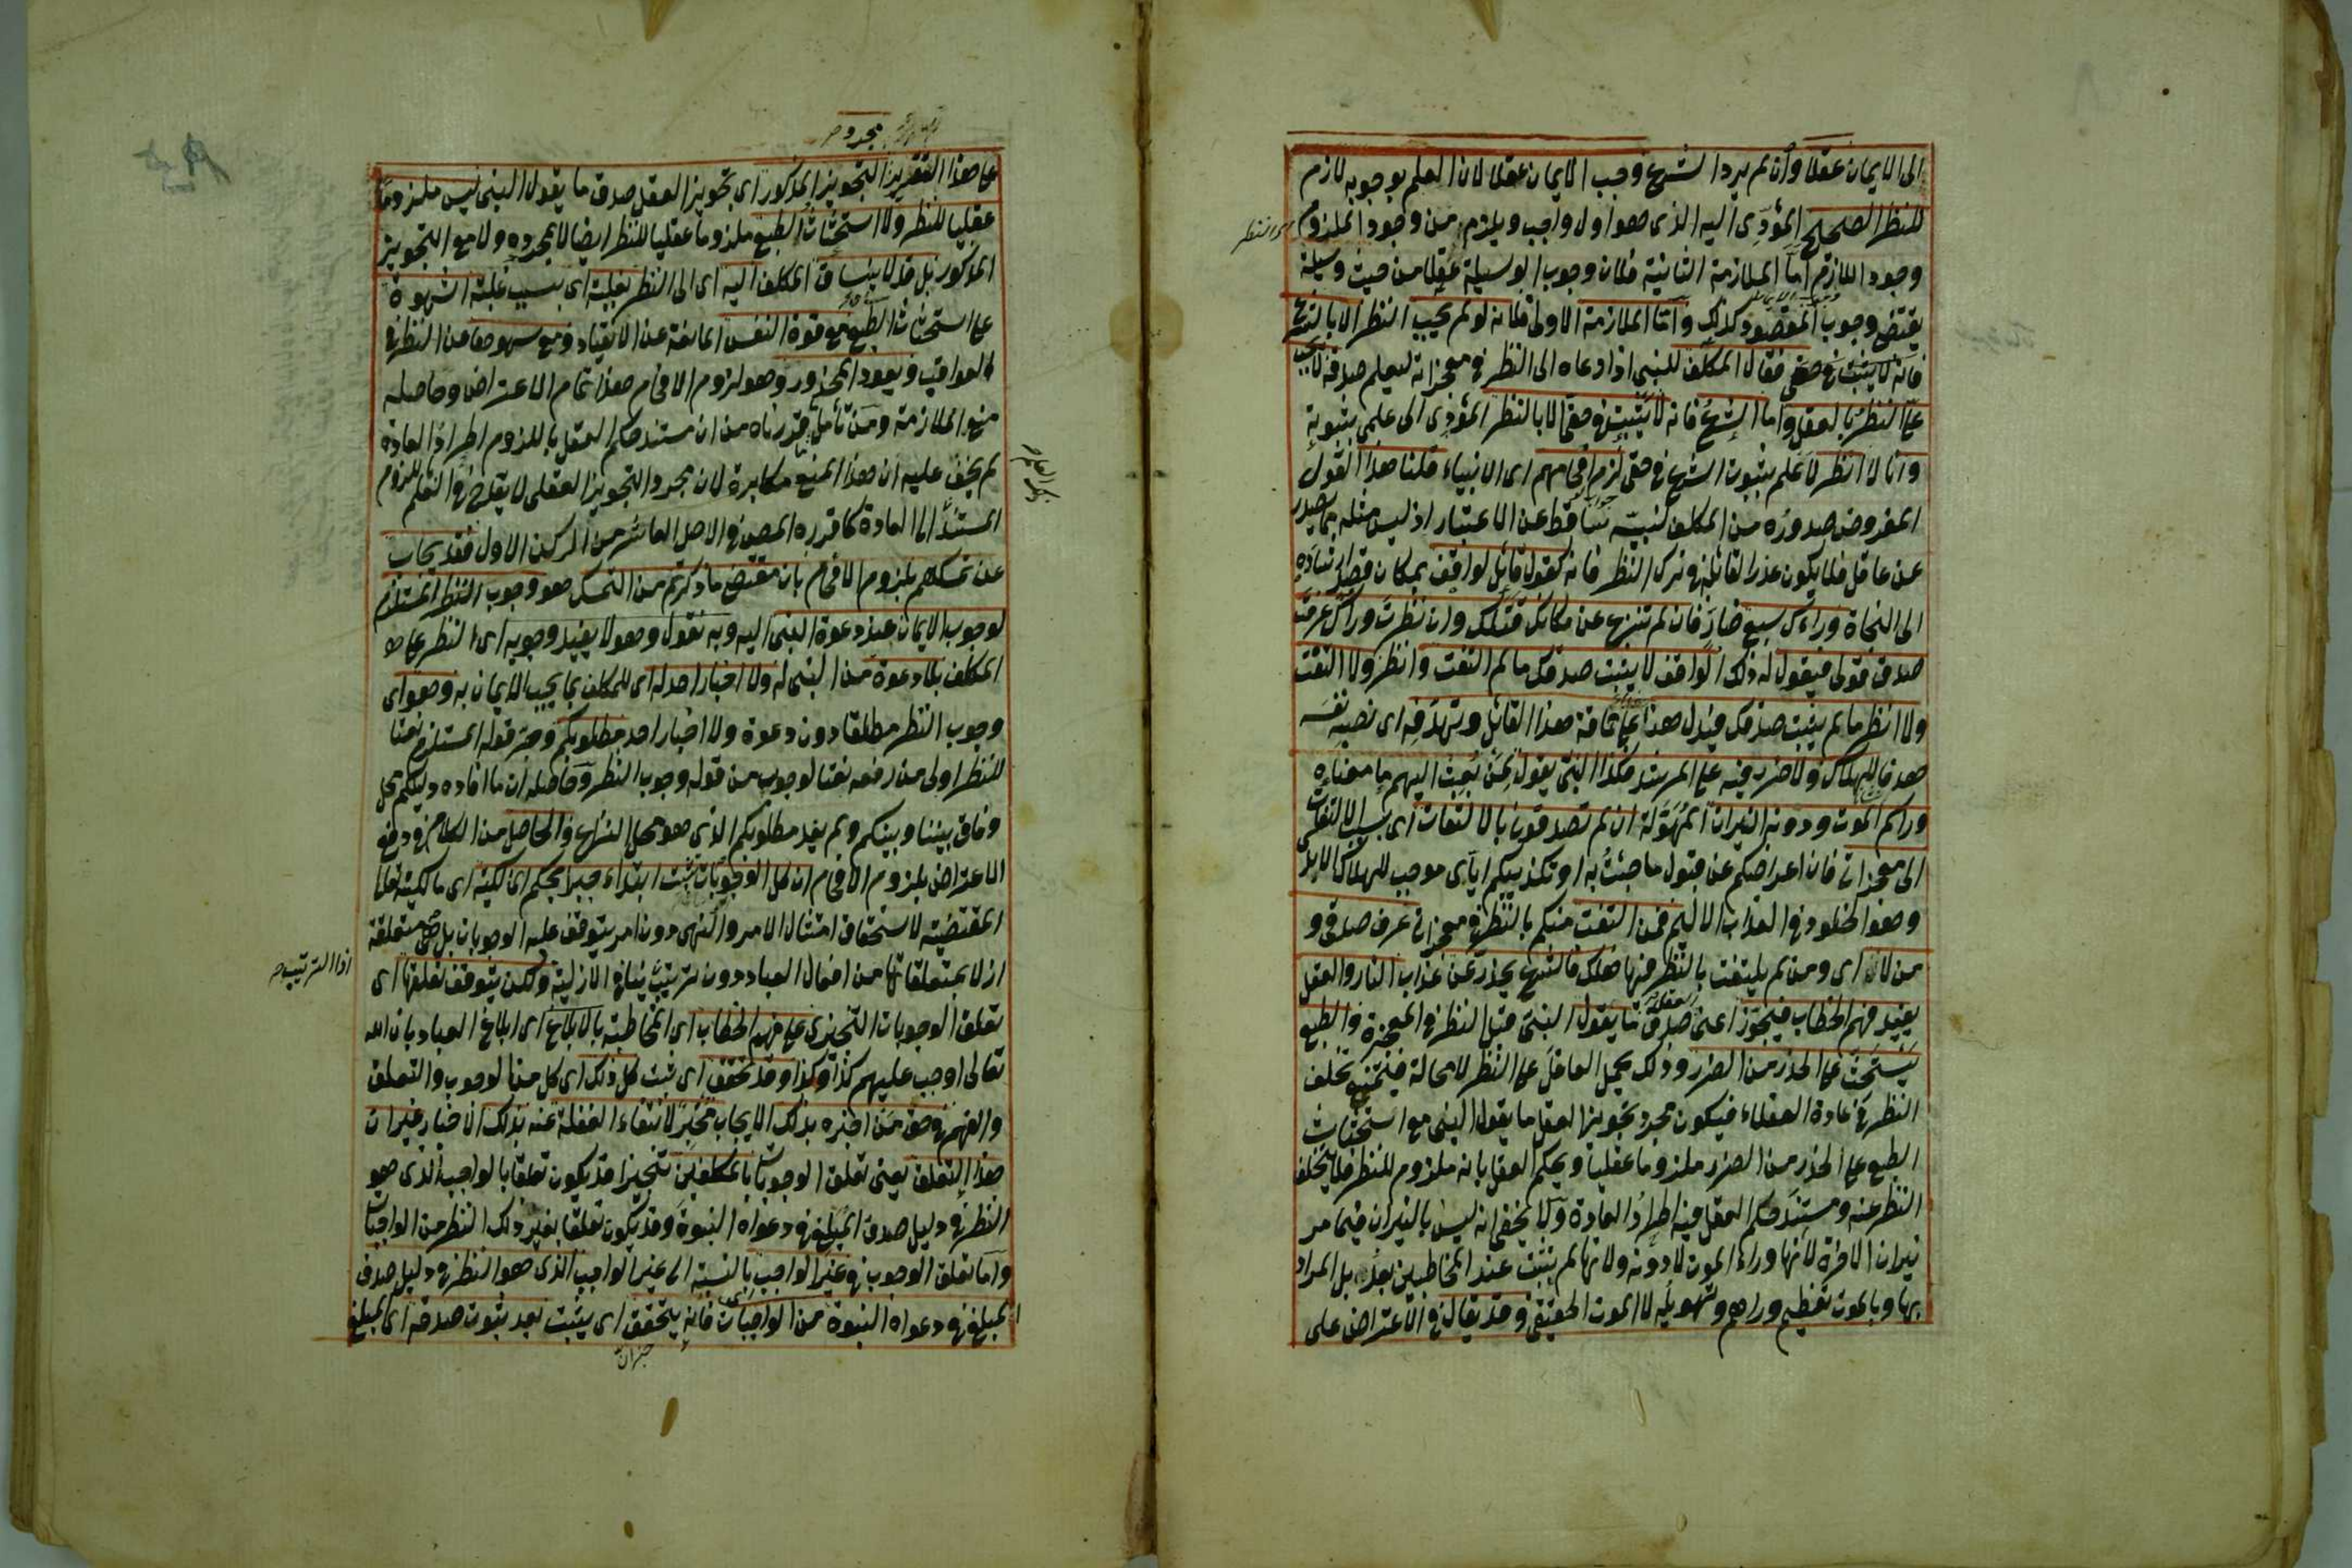 الى الايمان عقلا وان لم يرد الشرع وجب الايمان عقلا لان العلم بوجوبه لازم
للنظر الصحيح المؤدى اليه الذى هو اول واجب ويلزم من وجود الملزوم
وجود اللازم اما الملازمة الثانية فلان وجوب الوسيلة عقلا من حيث وسيلة
يقتضى وجوب المقصود كذلك واما الملازمة الاولى فلانه لو لم يجب النظر الا بالشرع
فانه لا يثبت فى حقى فقال المكلف للنبى اذا دعاه الى النظر فى معجزاته ليعلم صدقه لا يجب
على النظر بالعقل واما الشرع فانه لا يثبت فى حقى الا بالنظر المؤدى الى علمى بثبوته
وانا لا انظر لاعلم بثبوت الشرع فى حقى لزم افحامهم اى الانبياء قلنا هذا القول
المفروض صدوره من المكلف لنبيه ساقط عن الاعتبار اذ ليس مثله مما يصدر
عن عاقل فلا يكون عذرا لقائله فى ترك النظر فانه كقول قائل لواقف بمكان قصد ارشاده
الى النجاة وراءك سبع ضار فان لم تنزعج عن مكانك قتلك وان نظرت وراءك عرفت
صدق قولى فيقول له ذلك الواقف لا يثبت صدقك ما لم التفت وانظر ولا التفت
ولا انظر ما لم يثبت صدقك فيدل هذا على حماقة هذا القائل وتهدفه اى نصبه نفسه
هدفا للهلاك ولا ضرر فيه على المرشد فكذا النبى يقول لمن بعث اليهم ما معناه
وراكم الموت ودونه النيران المهولة ان لم تصدقونى بالالتفات اى بسبب الالتفات
الى معجزاتى فان اعراضكم عن قبول ما جئت به او تكذيبكم اياى موجب للهلاك الابد
وهو الخلود فى العذاب الاليم فمن التفت منكم بالنظر فى معجزاتى عرف صدقى و
من لا اى ومن لم يلتفت بالنظر فيها هلك فالشرع يحذر عن عذاب النار والعقل
يفيد فهم الخطاب فيجوز اعنى العقل صدق ما يقول النبى قبل النظر فى المعجزة والطبع
يستحث على الحذر من الضرر وذلك يحمل العاقل على النظر لا محالة فيمتنع تخلف
النظر فى عادة العقلاء فيكون مجرد تجويز العقل ما يقول النبى مع استحثاث
الطبع على الحذر من الضرر ملزوما عقليا ويحكم العقل بانه ملزوم للنظر فلا يتخلف
النظر عنه ومستند حكم العقل فيه اطراد العادة ولا يخفى انه ليس بالنيران فيما مر
نيران الاخرة لانها وراء الموت لا دونه ولانها لم يثبت عند المخاطبين بعد بل المراد
بها وبالموت تفظيع وراهم وتهويله لا الموت الحقيقى وقد يقال فى الاعتراض على
مجرد
على هذا التقرير التجويز المذكور اى تجويز العقل صدق ما يقول النبى ليس ملزوما
عقليا للنظر ولا استحثاث الطبع ملزوما عقليا للنظر ايضا لا بمجرده ولا مع التجويز
المذكور بل قد لا ينساق المكلف اليه اى الى النظر لغلبة اى بسبب غلبة الشهوة
على استحثاث الطبع مع قوة النفس المانعة عن الانقياد ومع سهوها عن النظر فى
العواقب ويعود المحذور وهو لزوم الافحام هذا تمام الاعتراض وحاصله
منع الملازمة ومن تأمل ما قررناه من ان مستند حكم العقل بالملزوم اطراد العادة
لم يخف عليه ان هذا المنع مكابرة لان مجرد التجويز العقلى لا يقدح فى العلم بلزوم
المستند الى العادة كما قرره المصنف فى الاصل العاشر من الركن الاول فقد يجاب
عن تمسكهم بلزوم الافحام بان مقتضى ما ذكرتم من التمسك هو وجوب النظر المستلزم
لوجوب الايمان عند دعوة النبى اليه وبه نقول وهو لا يفيد وجوبه اى النظر على
المكلف بلا دعوة من النبى له ولا اخبار احد له اى للمكلف بما يجب الايمان به وهو اى
وجوب النظر مطلقا دون دعوة ولا اخبار احد مطلوبكم وجر قوله المستلزم نعتا
للنظر اولى من رفعه نعتا لوجوب من قوله وجوب النظر وحاصله ان ما افاده دليلكم محل
وفاق بيننا وبينكم ولم يفد مطلوبكم الذى هو محل النزاع والحاصل من الكلام فى دفع
الاعتراض بلزوم الافحام ان كل الوجوبات تثبت ابتداء جبرا بحكم المالكية اى مالكيته تعالى
المقتضية لاستحقاق امتثال الامر والنهى دون امر يتوقف عليه الوجوبات بل هى متعلقة
ازلا بمتعلقاتها من افعال العباد دون ترتيب ينافى الازلية ولكن يتوقف تعلقها اى
اذا الترتيب
تعلق الوجوبات التنجيزى على فهم الخطاب اى المخاطبة بالابلاغ اى ابلاغ العباد بان الله
تعالى اوجب عليهم كذا وكذا وقد تحقق اى ثبت كل ذلك اى كل من الوجوب والتعلق
والفهم فى حق من اخبره بذلك الايجاب مخبر لانتفاء الغفلة عنه بذلك الاخبار غير ان
هذا التعلق يعنى تعلق الوجوبات بالمكلفين تنجيزا قد يكون تعلقا بالواجب الذى هو
النظر فى دليل صدق المبلغ فى دعواه النبوة وقد يكون تعلقا بغير ذلك النظر من الواجبات
واما تعلق الوجوب فى غير الواجب بالنسبة الى غير الواجب الذى هو النظر فى دليل صدق
المبلغ فى دعواه النبوة من الواجبات فانه يتحقق اى يثبت بعد ثبوت صدقه اى المبلغ